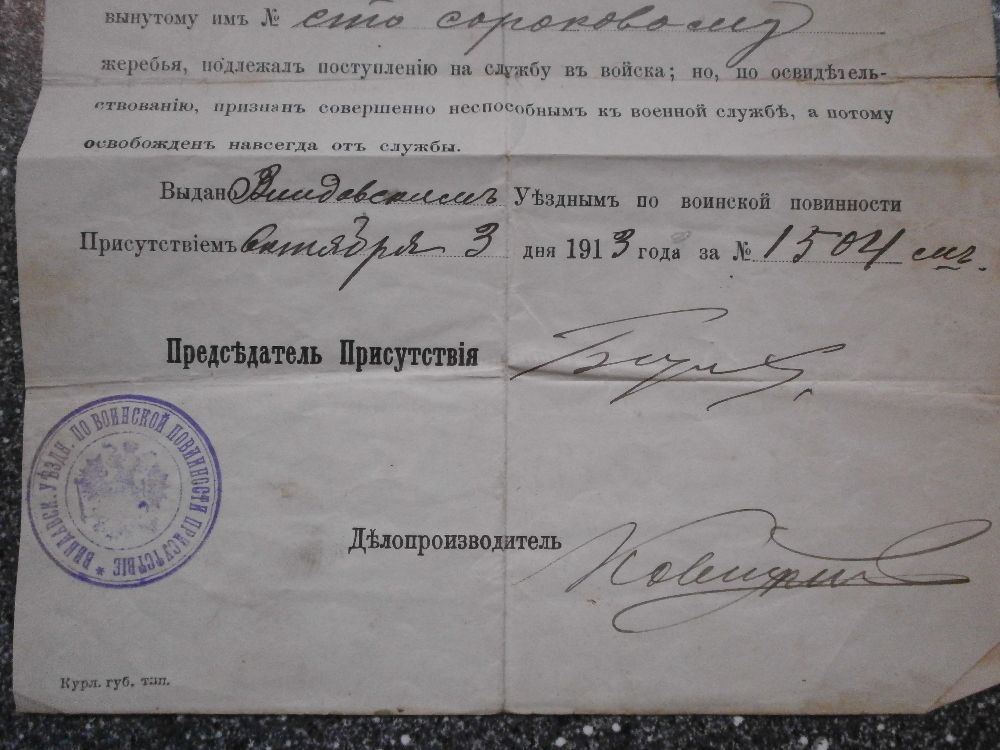 вынутому имъ № сто сороковому
жеребья, подлежалъ поступленію на службу въ войска; но, по освидѣтель-
ствованію, признанъ совершенно неспособнымъ къ военной службѣ, а потому
освобожденъ навсегда отъ службы.
Выдано Виндавскимъ Уѣзднымъ по воинской повинности
Присутствіемъ Октября 3 дня 1913 года за № 1504
Предсѣдатель Присутствія
ВИНДАВСК. УѢЗДН. ПО ВОИНСКОЙ ПОВИННОСТИ ПРИСУТСТВІЕ *
Дѣлопроизводитель
Курл. губ. тип.